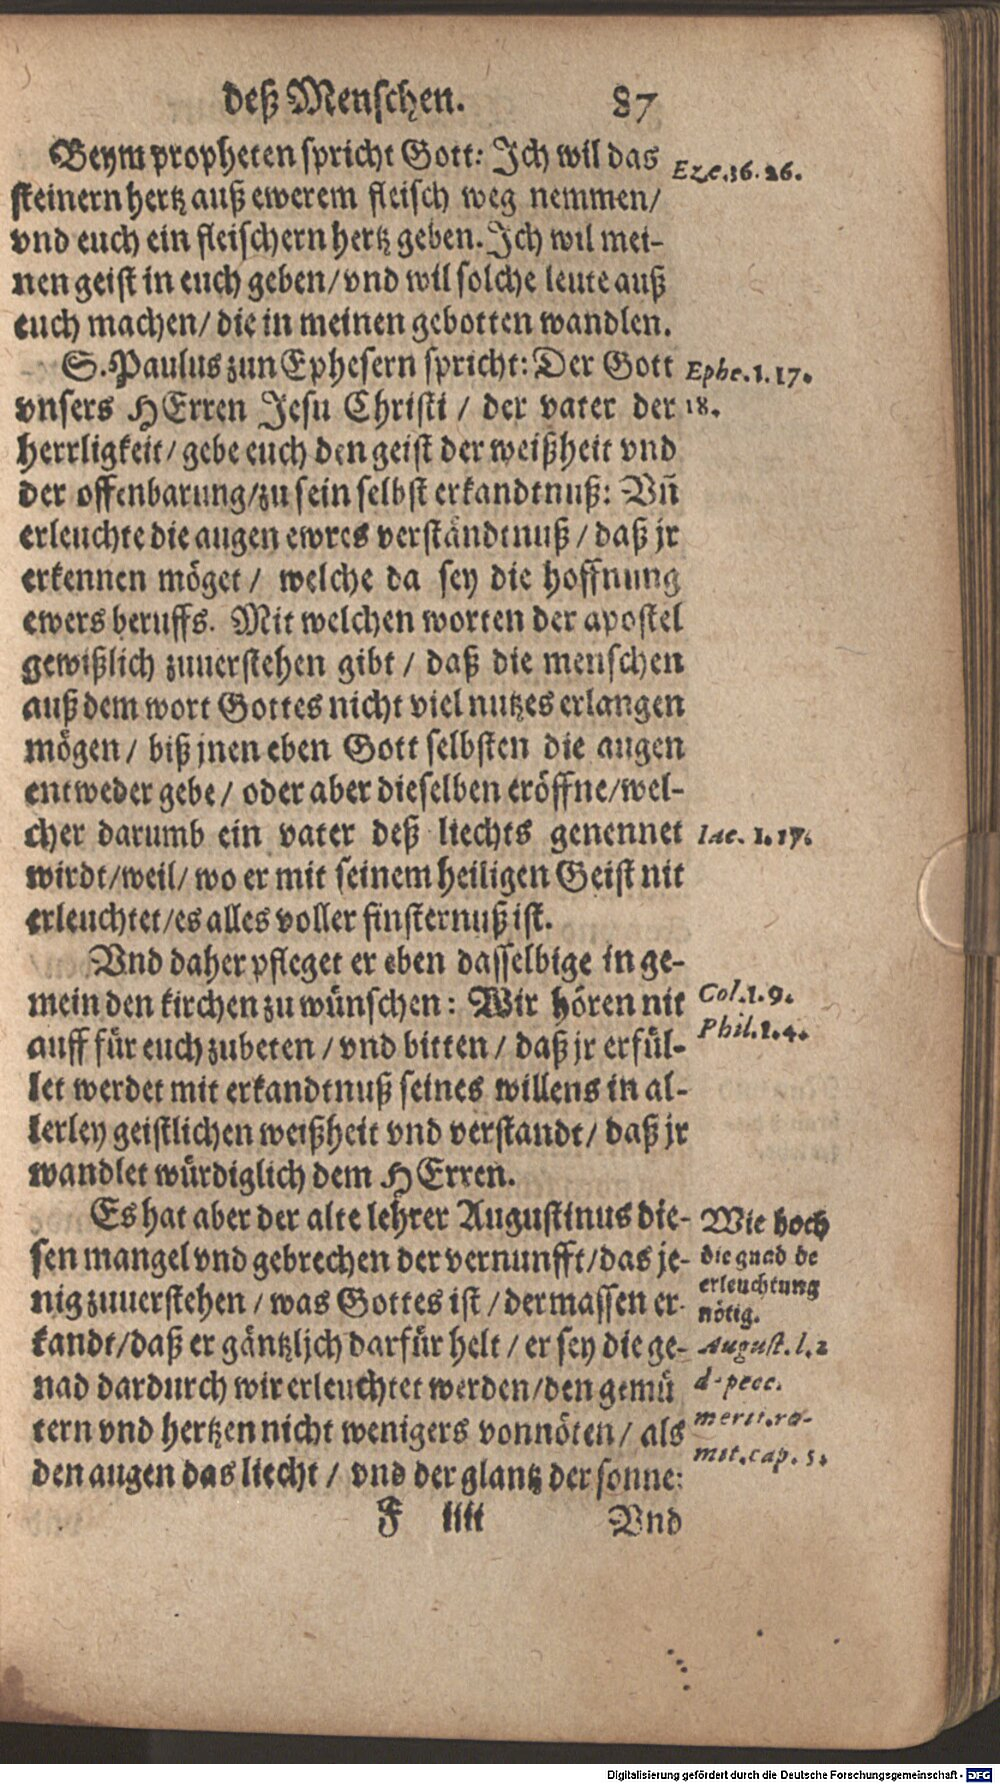 deß Menschen. 87
Beym propheten spricht Gott: Jch wil das
steinern hertz auß ewerem fleisch weg nemmen/
vnd euch ein fleischern hertz geben. Jch wil mei-
nen geist in euch geben/ vnd wil solche leute auß
euch machen/ die in meinen gebotten wandlen.
Eze.36.26.
S. Paulus zun Ephesern spricht: Der Gott
vnsers HErren Jesu Christi / der vater der
herrligkeit/ gebe euch den geist der weißheit vnd
der offenbarung/zu sein selbst erkandtnuß: Vñ
erleuchte die augen ewres verständtnuß / daß jr
erkennen möget / welche da sey die hoffnung
ewers beruffs. Mit welchen worten der apostel
gewißlich zuuerstehen gibt / daß die menschen
auß dem wort Gottes nicht viel nutzes erlangen
mögen / biß jnen eben Gott selbsten die augen
entweder gebe / oder aber dieselben eröffne/wel-
cher darumb ein vater deß liechts genennet
wirdt/weil/ wo er mit seinem heiligen Geist nit
erleuchtet/es alles voller finsternuß ist.
Ephe.1.17.
18.
Iac. 1.17.
Vnd daher pfleget er eben dasselbige in ge-
mein den kirchen zu wünschen: Wir hören nit
auff für euch zubeten / vnd bitten / daß jr erfül-
let werdet mit erkandtnuß seines willens in al-
lerley geistlichen weißheit vnd verstandt/ daß jr
wandlet würdiglich dem HErren.
Col.1.9.
Phil.1.4.
Es hat aber der alte lehrer Augustinus die-
sen mangel vnd gebrechen der vernunfft/das je-
nig zuuerstehen / was Gottes ist / dermassen er-
kandt/daß er gäntzljch darfür helt / er sey die ge-
nad dardurch wir erleuchtet werden/den gemü
tern vnd hertzen nicht wenigers vonnöten / als
den augen das liecht / vnd der glantz der sonne:
Wie hoch
die gnad de
erleuchtung
nötig.
August.l.2
d. pecc.
merit.ra-
mit.cap.5.
F iiii Vnd
Digitalisierung gefördert durch die Deutsche Forschungsgemeinschaft - DFG